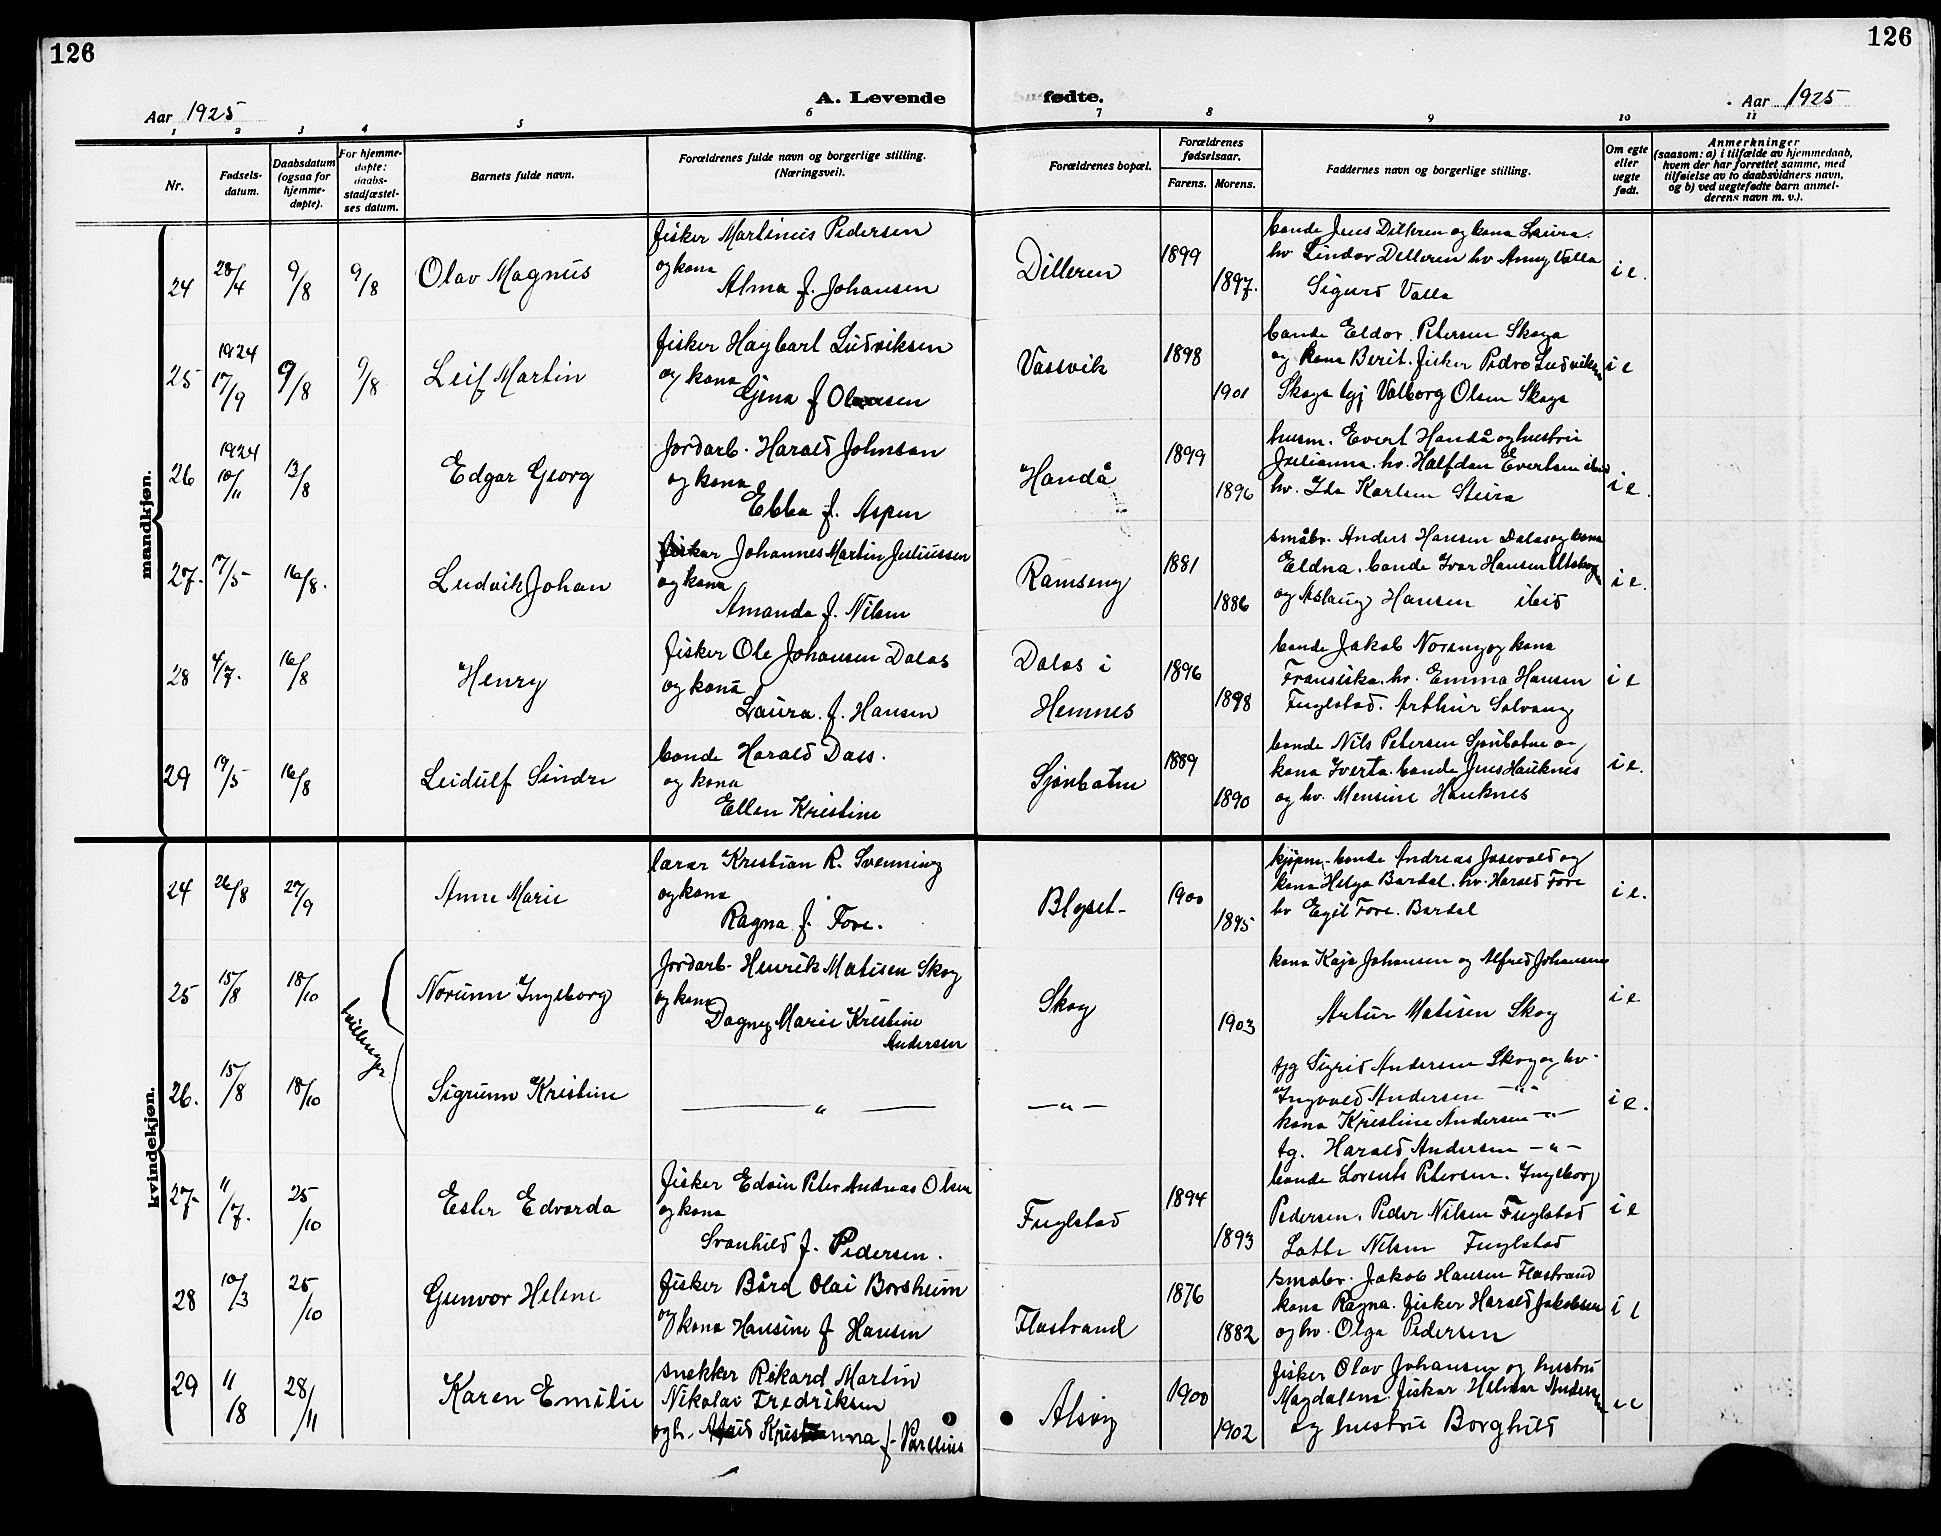 126
126
A. Levende fødte.
Aar 1925
Aar 1925
1 2 3 4 5 6 7 8 9 10 11
Nr.
Fødsels-
datum.
Daabsdatum
(ogsaa for
hjemme-
døpte).
For hjemme-
døpte:
daabs-
stadfæstel-
ses datum.
Barnets fulde navn.
Forældrenes fulde navn og borgerlige stilling.
(Næringsvei).
Forældrenes bopæl.
Forældrenes
fødselsaar.
Farens. Morens.
Faddernes navn og borgerlige stilling.
Om egte
eller
uegte
født.
Anmerkninger
(saasom: a) i tilfælde av hjemmedaab,
hvem der har forrettet samme, med
tilføielse av to daabsvidners navn,
og b) ved uegtefødte barn anmel-
derens navn m. v.).
mandkjøn.
24 28/4 9/8 9/8 Olav Magnus
fisker Martinus Pedersen
og kona
Alma f. Johansen
Dilleren 1899 1897.
bonde Jens Dilleren og kona Laura.
hv Lindor Dilleren hv Anny Valla
Sigurd Valla
i e.
25 1924 17/9 9/8 9/8 Leif Martin
fisker Hagbart Ludviksen
og kona
Gjena f Olsen
Vassvik 1898 1901
bonde Eldor Petersen Skoga
og kona Berit. fisker Pedro Ludviksen
Skoga tgj Valborg Olsen Skoga
i e
26 1924 10/11 13/8 Edgar Georg
Jordarb. Harald Johnsen
og kona
Ebba f. Aspen
Handå 1899 1896
husm. Evert Handå og hustru
Julianna. hv. Halfdan Evertsen ibid
hv. Ida Karlsen Steira
i e.
27. 17/5 16/8. Ludvik Johan
fisker Johannes Martin Juliussen
og kona
Amanda f. Nilsen
Ramseng 1881 1886
småbr. Anders Hansen Dalas og kona
Eldna. bonde Ivar Hansen
og Aslaug Hansen ibid
i e.
28 4/7. 16/8 Henry
fisker Ole Johansen Dalos
og kona
Laura. f. Hansen
Dalos i
Hemnes
1896 1898
bonde Jakob Norang og kona
Fransiska. hv. Emma Hansen
Fuglstad. Arthur Solvang
i e
29 19/5 16/8 Leidulf Sindre
bonde Harald Dass.
og kona
Ellen Kristine
Sjonbotn 1889 1890
bonde Nils Petersen Sjonbotne og
kona Iverta. bonde Jens Hauknes
og hv. Mensine Hauknes
i e.
kvindekjøn.
24 26/8 27/9 Anne Marie
lærer Kristian R. Svenning
og kona
Ragna f. Fore.
Blyset 1900 1895
kjøpm. bonde Andreas og
kona Helga Bardal. hv. Harald Fore
hv Egil Fore. Bardal
i e.
tvillinger
25 15/8 18/10 Norunn Ingeborg
Jordarb. Henrik Matisen Skog
og kona
Dagny Marie Kristine
Andersen
Skog 1903
kona Kaja Johansen og Alfred Johansen
Artur Matisen Skog
i e
26. 15/8 18/10 Sigrunn Kristine
— " —
— " —
tjg Sigrid Andersen Skog og hv.
Ingvald Andersen — " —
kona Kristine Andersen — " —
tg. Harald Andersen — " —
i e.
27. 11/7. 25/10 Ester Edvarda
fisker Edvin Peter Andreas Olsen
og kona
Svanhild f. Pedersen.
Fuglstad 1894 1893
bonde Lorents Petersen. Ingeborg
Pedersen. Peder Nilsen Fuglstad
Lotte Nilsen Fuglstad
i e
28 10/3 25/10 Gunvor Helene
fisker Bård Olai Borsheim
og kona Hansine f Hansen
Flostrand 1876 1882
småbr. Jakob Hansen Flostrand
kona Ragna. fisker Harald Jakobsen
og hv. Olga Pedersen
i e
29 11/8 28/11 Karen Emilie
snekker Rikard Martin
Nikolai Fredriksen
ogh. Astrid f.
Alsvig 1900 1902
fisker Olav Johansen og hustru
Magdalena. fisker Helmer Andersen
og hustru Borghild
i e